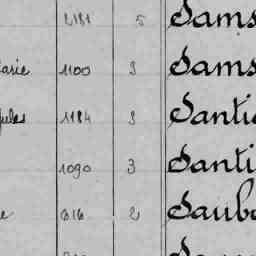 1181 5 Sams
arie 1100 3 Sams
ules 1184 3 Santi
1090 3 Santi
e 616 2 Saub